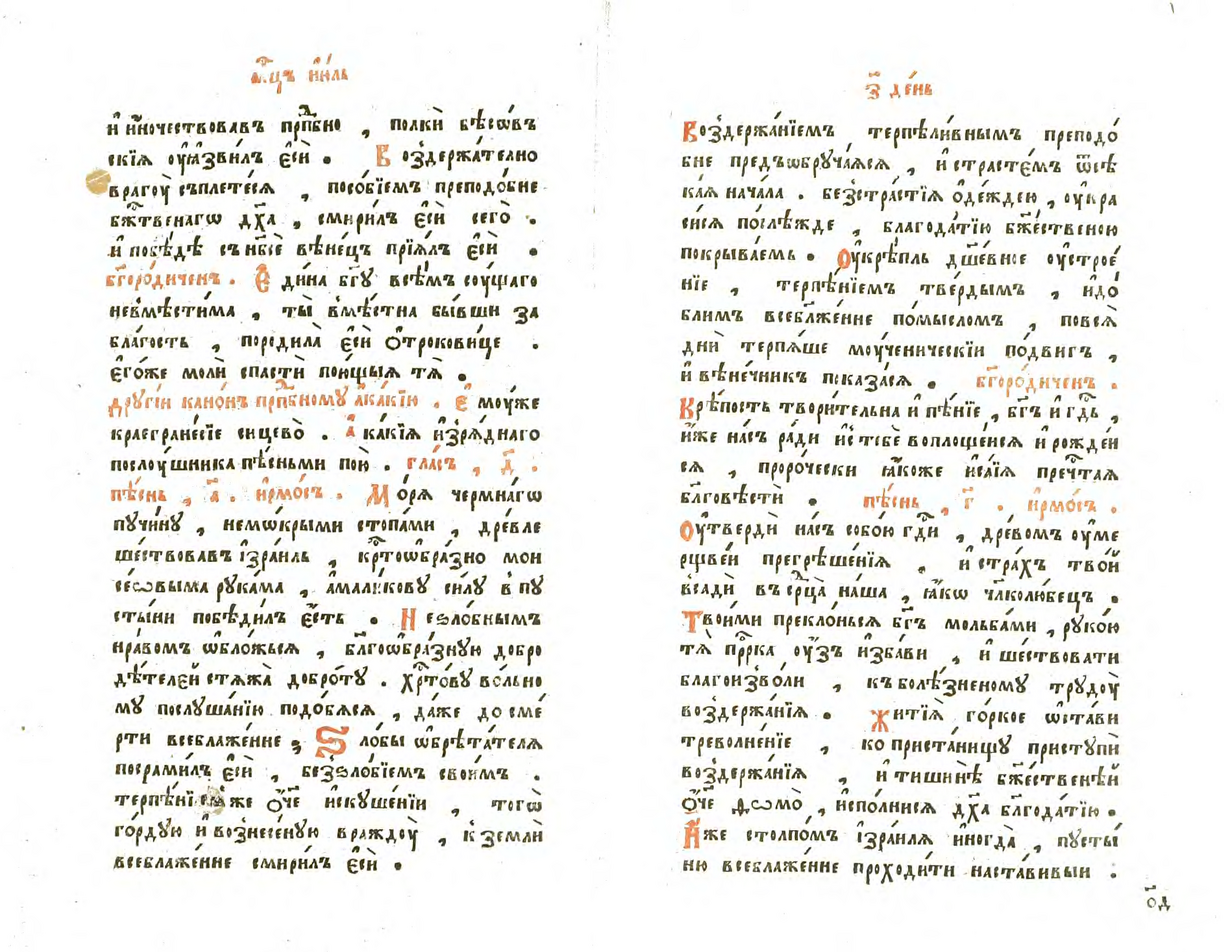 мцъ іюль
и҆ и҆ночествовавъ прпⷣбно , полкѝ бѣсѡ́въ
скїѧ ᲂу҆ѧ҆звилъ є҆сѝ . Воздержа́телно
врагᲂу̀ съплете́сѧ , посо́бїемъ преподо́бне
бж҃твенагѡ дх҃а , смири́лъ є҆сѝ сего̀ .
и҆ побѣ́дѣ съ нб҃сѐ вѣне́цъ прїѧ́лъ є҆сѝ .
бг҃оро́диченъ . Є҆ди́на бг҃ꙋ всѣ́мъ сᲂу́щаго
невмѣсти́ма , ты̀ вмѣ́стна бы́вши за
бла́гость , породи́ла є҆сѝ ѻ҆трокови́це .
є҆го́же молѝ спастѝ пою́щыѧ тѧ̀ .
дрꙋгі́и кано́нъ прпⷣбномꙋ а҆ка́кїю . є҆мᲂу́же
краегране́сїе си́цево̀ . А҆ка́кїѧ и҆зрѧ́днаго
послᲂу́шника пѣ́сньми пою̀ . гла́съ , д҃ .
пѣ́снь , а҃ . и҆рмо́съ . Мо́рѧ чермна́гѡ
пꙋчи́нꙋ , немѡ́крыми стопа́ми , дре́вле
ше́ствовавъ і҆зра́иль , кртⷭ҇ѡѡбра́зно мои
се́ѡвыма рꙋка́ма , а҆мали́ковꙋ си́лꙋ в пꙋ
сты́ни побѣди́лъ є҆́сть . Неѕло́бнымъ
нра́вомъ ѡ҆бло́жьсѧ , бл҃гоѡбра́знꙋю добро
дѣ́телеи стѧжа̀ добро́тꙋ . Хртⷭ҇о́вꙋ во́льно
мꙋ послꙋша́нїю подо́бѧсѧ , да́же до сме́
рти всебlаже́нне , Ѕло́бы ѡ҆брѣта́телѧ
посрами́лъ є҆сѝ , беѕѕло́бїемъ свои́мъ .
терпѣ́нїемъ же ѻ҆́ч҃е и҆скꙋше́нїи , того̀
го́рдꙋю и҆ вознесе́нꙋю враждᲂу̀ , к землѝ
всеблаже́нне смири́лъ є҆сѝ .
з҃ де́нь
Воздержа́нїемъ терпѣли́внымъ преподо́
бне предъѡбрꙋча́ѧсѧ , и҆ страсте́мъ ѿсѣ
ка́ѧ нача́ла . безстра́стїѧ ѻ҆де́ждею , ᲂу҆кра
си́сѧ послѣ́жде , благода́тїю бж҃е́ственою
покрыва́емь . Оу҆крѣ́пль дш҃е́вное ᲂу҆строе́
нїе , терпѣ́нїемъ тве́рдымъ , и҆ до́
блимъ всеблаже́нне по́мысломъ , повсѧ̀
днѝ терпѧ́ше мᲂу́ченическїи по́двигъ ,
и҆ вѣне́чникъ показа́сѧ . бг҃оро́диченъ .
Крѣ́пость твори́тельна и҆ пѣ́нїе , бг҃ъ и҆ гдⷭ҇ь ,
и҆́же на́съ ра́ди и҆с тебѐ воплоще́нсѧ и҆ рожде́и
сѧ , проро́чески ѧ҆́коже и҆са́їѧ пречⷭ҇таѧ
бл҃говѣстѝ . пѣ́снь , г҃ . и҆рмо́съ .
Оу҆твердѝ на́съ собо́ю гдⷭ҇и , дре́вомъ ᲂу҆ме
рщве́и прегрѣше́нїѧ , и҆ стра́хъ тво́и
всадѝ въ срⷣца̀ на́ша , ѧ҆́кѡ чл҃колю́бецъ .
Твои́ми прекло́ньсѧ бг҃ъ мольба́ми , рꙋко́ю
тѧ̀ прⷪ҇рка ᲂу҆́зъ и҆зба́ви , и҆ ше́ствовати
благоизво́ли , къ болѣ́зненомꙋ трꙋдᲂу̀
воздержа́нїѧ . Житїѧ̀ го́ркое ѡ҆ста́ви
треволне́нїе , ко приста́нищꙋ пристꙋпѝ
воздержа́нїѧ , и҆ тишинѣ̀ бж҃е́ственѣи
ѻ҆́ч҃е дѡмо̀ , и҆спо́лнисѧ дх҃а бл҃года́тїю .
И҆́же столпо́мъ і҆зра́илѧ и҆ногда̀ , пꙋсты́
ню всеблаже́нне проходи́ти наста́вивыи .
ѻ҃д